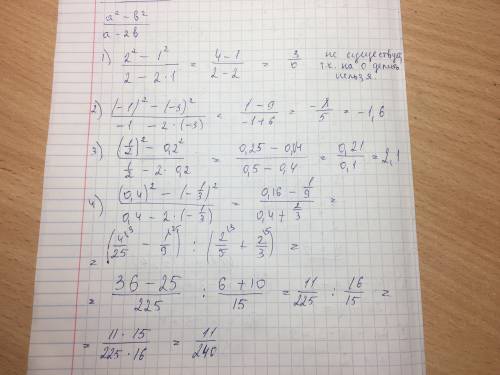 a² - в²
a - 2в
1) (2² - 1²)/(2 - 2·1) = (4-1)/(2-2) = 3/0 не существует, т.к. на 0 делить нельзя.
2) ((-1)² - (-3)²)/(-1 - 2·(-3)) = (1-9)/(-1+6) = -8/5 = -1,6
3) ((1/2)² - 0,2²)/(1/2 - 2·0,2) = (0,25 - 0,04)/(0,5 - 0,4) = 0,21/0,1 = 2,1
4) ((0,4)² - (-1/3)²)/(0,4 - 2·(-1/3)) = (0,16 - 1/9)/(0,4 + 2/3) =
= (4/25 - 1/9) : (2/5 + 2/3) =
= (36-25)/225 : (6+10)/15 = 11/225 : 16/15 =
= (11·15)/(225·16) = 11/240